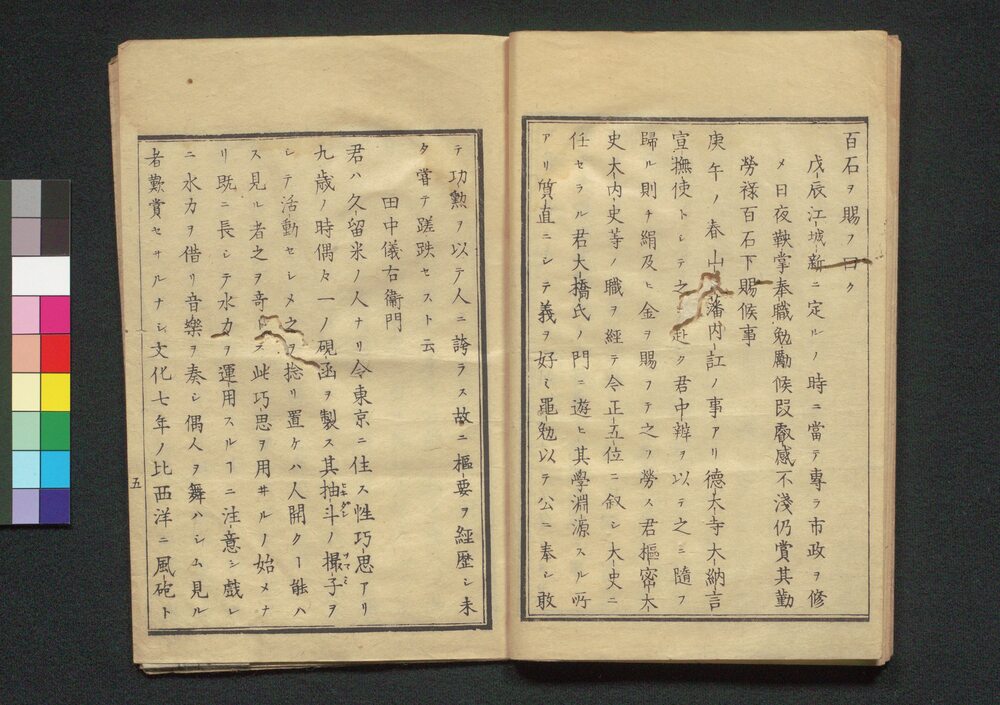 百石ヲ賜フ曰ク
戊辰江城新ニ定ルノ時ニ當テ專ラ市政ヲ修
メ日夜鞅掌奉職勉勵候段叡感不淺仍賞其勤
勞祿百石下賜候事
庚午ノ春山口藩内訌ノ事アリ德大寺大納言
宣撫使トシテ之ニ赴ク君中辨ヲ以テ之ニ隨フ
歸ル則チ絹及ヒ金ヲ賜フテ之ヲ勞ス君樞密大
史大内史等ノ職ヲ經テ今正五位ニ叙シ大史ニ
任セラル君大橋氏ノ門ニ遊ヒ其學淵源スル所
アリ質直ニシテ義ヲ好ミ黽勉以テ公ニ奉シ敢
テ功勲ヲ以テ人ニ誇ラス故ニ樞要ヲ經歴シ未
タ嘗テ蹉跌セスト云
田中儀右衞門
君ハ久留米ノ人ナリ今東京ニ住ス性巧思アリ
九歳ノ時偶々一ノ硯函ヲ製ス其抽斗ノ撮子ヲ
シテ活動セシメ之ヲ捻リ置ケハ人開クヿ能ハ
ス見ル者之ヲ奇トス此巧思ヲ用井ルノ始メナ
リ既ニ長シテ水力ヲ運用スルヿニ注意シ戯レ
ニ水力ヲ借リ音樂ヲ奏シ偶人ヲ舞ハシム見ル
者歎賞セサルナシ文化七年ノ比西洋ニ風砲ト
五